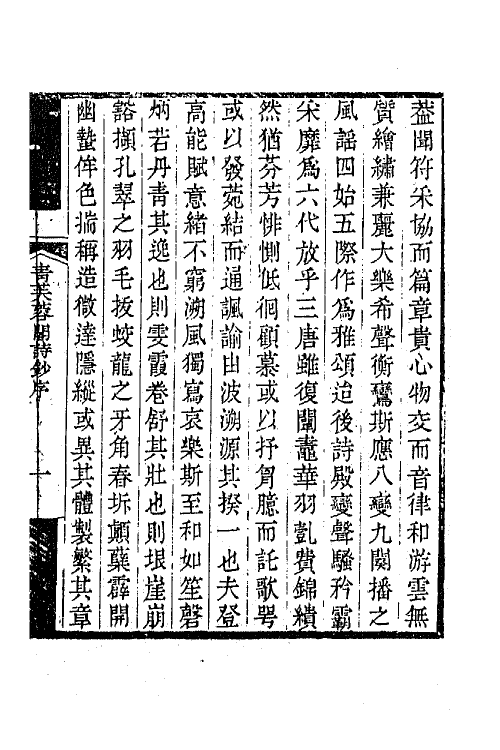 葢聞符采協而篇章貴心物交而音律和游雲無
質繪繡兼麗大樂希聲衡鸞斯應八變九闋播之
風謡四始五際作爲雅頌迨後詩殿變聲騷矜霸
采靡爲六代放乎三唐雖復闈鼃華羽凱費錦繢
然猶芬芳悱惻低徊顧慕或以抒胷臆而託歌咢
或以發菀結而通諷諭由波溯源其揆一也夫登
高能賦意緒不窮溯風獨寫哀樂斯至和如笙磬
炳若丹青其逸也則雯霞卷舒其壯也則垠崖崩
豁擷孔翠之羽毛拔蛟龍之牙角春坼顛蘖霹開
幽蟄侔色揣稱造微達隱縱或異其體製繁其章
青芙蓉閣詩鈔序
一